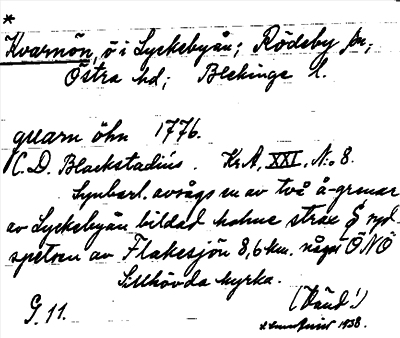 *
Kvarnön, ö i Lyckebyån; Rödeby sn;
Östra hd; Blekinge l.
quarn öhn 1776.
C. D. Blackstadius. Kr.A. XXI. No 8.
Synbarl. avsågs en av två å-grenar
av Lyckebyån bildad holme strax S nyd.
spetsen av Flakesjön 8,6 km. något ÖNÖ
Sillhövda kyrka.
G. 11.
1938.